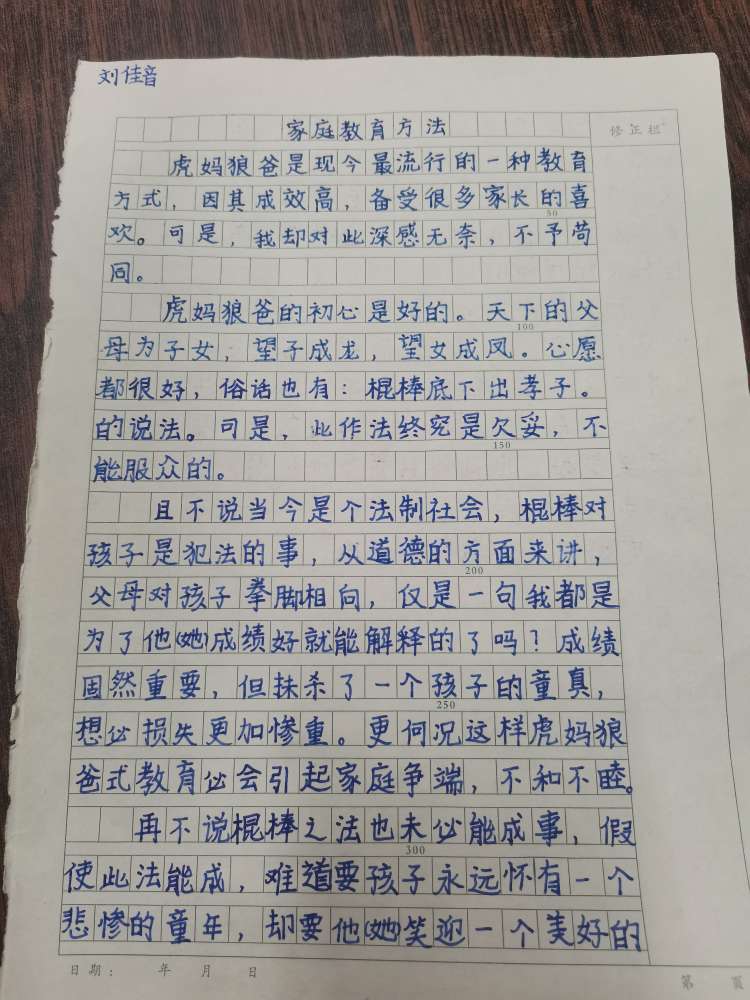 刘佳音
家庭教育方法
修正栏
虎妈狼爸是现今最流行的一种教育
方式，因其成效高，备受很多家长的喜
50
欢。可是，我却对此深感无奈，不予苟
同。
虎妈狼爸的初心是好的。天下的父
100
母为子女，望子成龙，望女成凤。心愿
都很好，俗话也有：棍棒底下出孝子。
的说法。可是，此作法终究是欠妥，不
150
能服众的。
且不说当今是个法制社会，棍棒对
孩子是犯法的事，从道德的方面来讲，
200
父母对孩子拳脚相向，仅是一句我都是
为了他(她)成绩好就能解释的了吗？成绩
固然重要，但抹杀了一个孩子的童真，
250
想必损失更加惨重。更何况这样虎妈狼
爸式教育必会引起家庭争端，不和不睦。
再不说棍棒之法也未必能成事，假
300
使此法能成，难道要孩子永远怀有一个
悲惨的童年，却要他(她)笑迎一个美好的
日期： 年 月 日
第 页